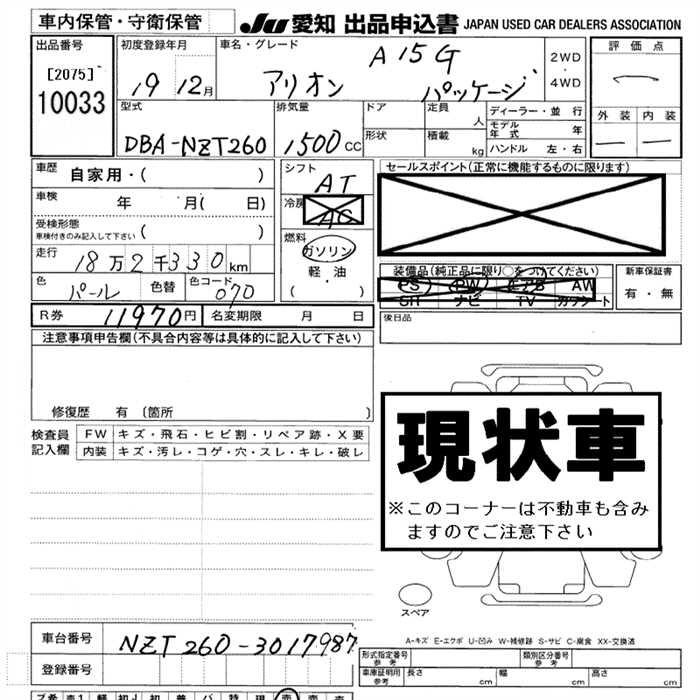 車内保管・守衛保管
JU 愛知 出品申込書 JAPAN USED CAR DEALERS ASSOCIATION
出品番号
[2075]
10033
初度登録年月
19 12月
車名・グレード
アリオン A15 G パッケージ
2WD
・
4WD
評価点
外装 内装
型式
DBA-NZT260
排気量
1500 CC
ドア
形状
定員 人
積載 kg
ディーラー・並行
モデル年式 年
ハンドル 左・右
車歴
自家用・( )
車検 年 月( 日)
受検形態
車検付きのみ記入して下さい ( )
走行 18万2千330km
色 パール 色替 色コード 070
シフト
AT
冷房
AC
燃料
ガソリン
軽・油
( )
セールスポイント(正常に機能するものに限ります)
装備品(純正品に限り○をつけてください)
PS PW エアB AW
SR ナビ TV カワシート
新車保証書
有・無
R券 11970円 名変期限 月 日
後日品
注意事項申告欄(不具合内容等は具体的に記入して下さい)
修復歴 有〔箇所 〕
検査員 FW キズ・飛石・ヒビ割・リペア跡・X要
記入欄 内装 キズ・汚レ・コゲ・穴・スレ・キレ・破レ
現状車
※このコーナーは不動車も含み
ますのでご注意下さい
スペア
A-キズ E-エクボ U-凹み W-補修跡 S-サビ C-腐食 XX-交換済
車台番号 NZT260-3017987
登録番号
形式指定番号
参考
類別区分番号
参考
車庫証明用
参考
長さ cm 幅 cm 高さ cm